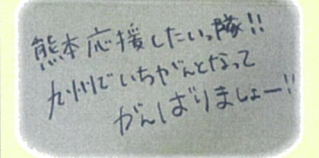 熊本応援したいっ隊!!
九州でいちがんとなって
がんばりましょー!!